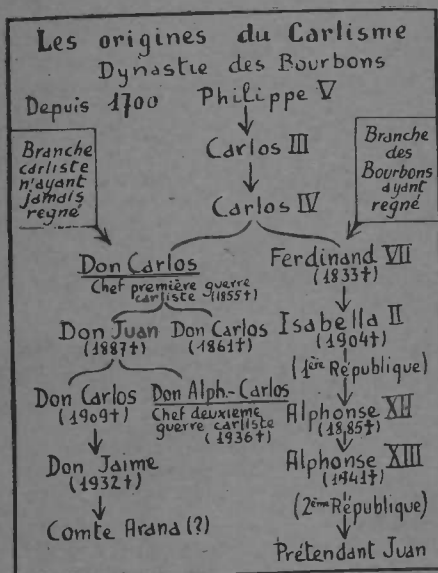 Les origines du Carlisme
Dynastie des Bourbons
Depuis 1700 Philippe V
Branche
carliste
n'ayant
jamais
regné
Carlos III
Branche
des
Bourbons
ayant
regné
Carlos IV
Don Carlos
Chef première guerre
carliste (1855†)
Ferdinand VII
(1833†)
Don Juan
(1887†)
Don Carlos
(1861†)
Isabella II
(1904†)
(1ère République)
Don Carlos
(1909†)
Don Alph.-Carlos
Chef deuxième
guerre carliste
(1936†)
Alphonse XII
(1885†)
Don Jaime
(1932†)
Alphonse XIII
(1941†)
(2ème République)
Comte Arana (?)
Prétendant Juan